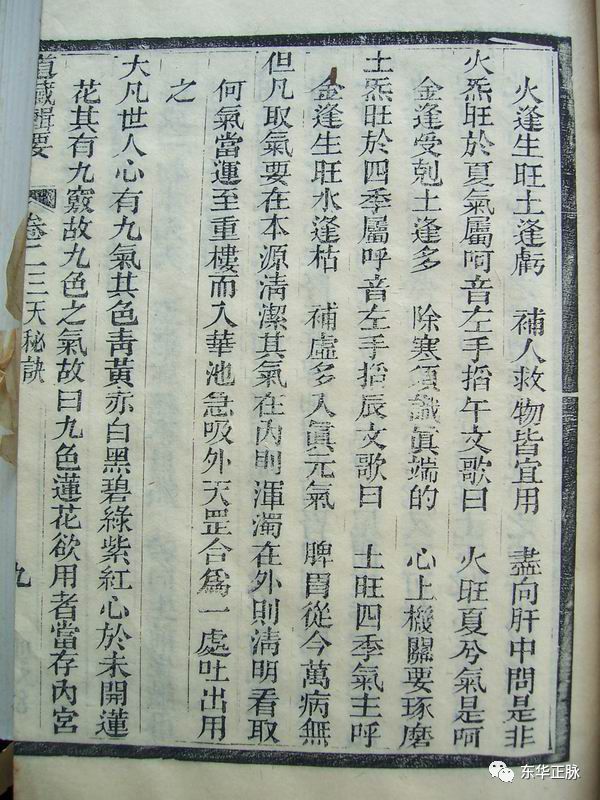 火逢生旺土逢虧　補人救物皆宜用　盡向肝中問是非
火炁旺於夏氣屬呵音左手搯午文歌曰　火旺夏兮氣是呵
金逢受剋土逢多　除寒須識眞端的　心上機關要琢磨
土炁旺於四季屬呼音左手搯辰文歌曰　土旺四季氣主呼
金逢生旺水逢枯　補虛多入眞元氣　脾胃從今萬病無
但凡取氣要在本源淸潔其氣在內則渾濁在外則淸明看取
何氣當運至重樓而入華池急吸外天罡合爲一處吐出用
之
大凡世人心有九氣其色靑黃赤白黑碧綠紫紅心於未開蓮
花其有九竅故九色之氣故曰九色蓮花欲用者當存內宮
道藏輯要　卷二三天秘訣　九
东华正脉